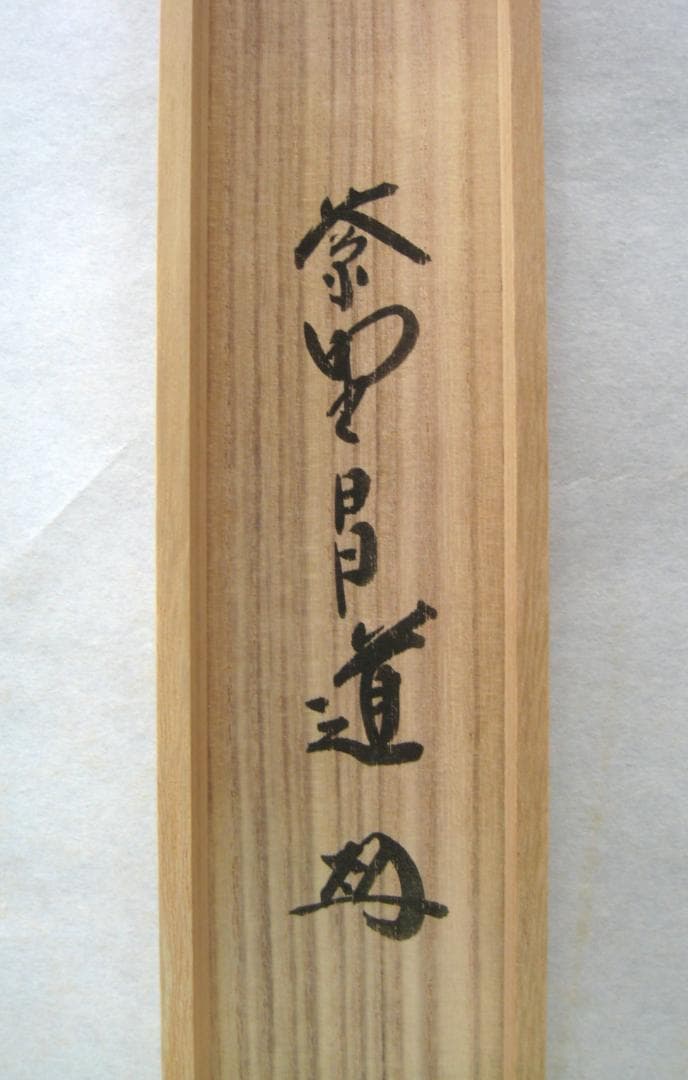 紫野昌道